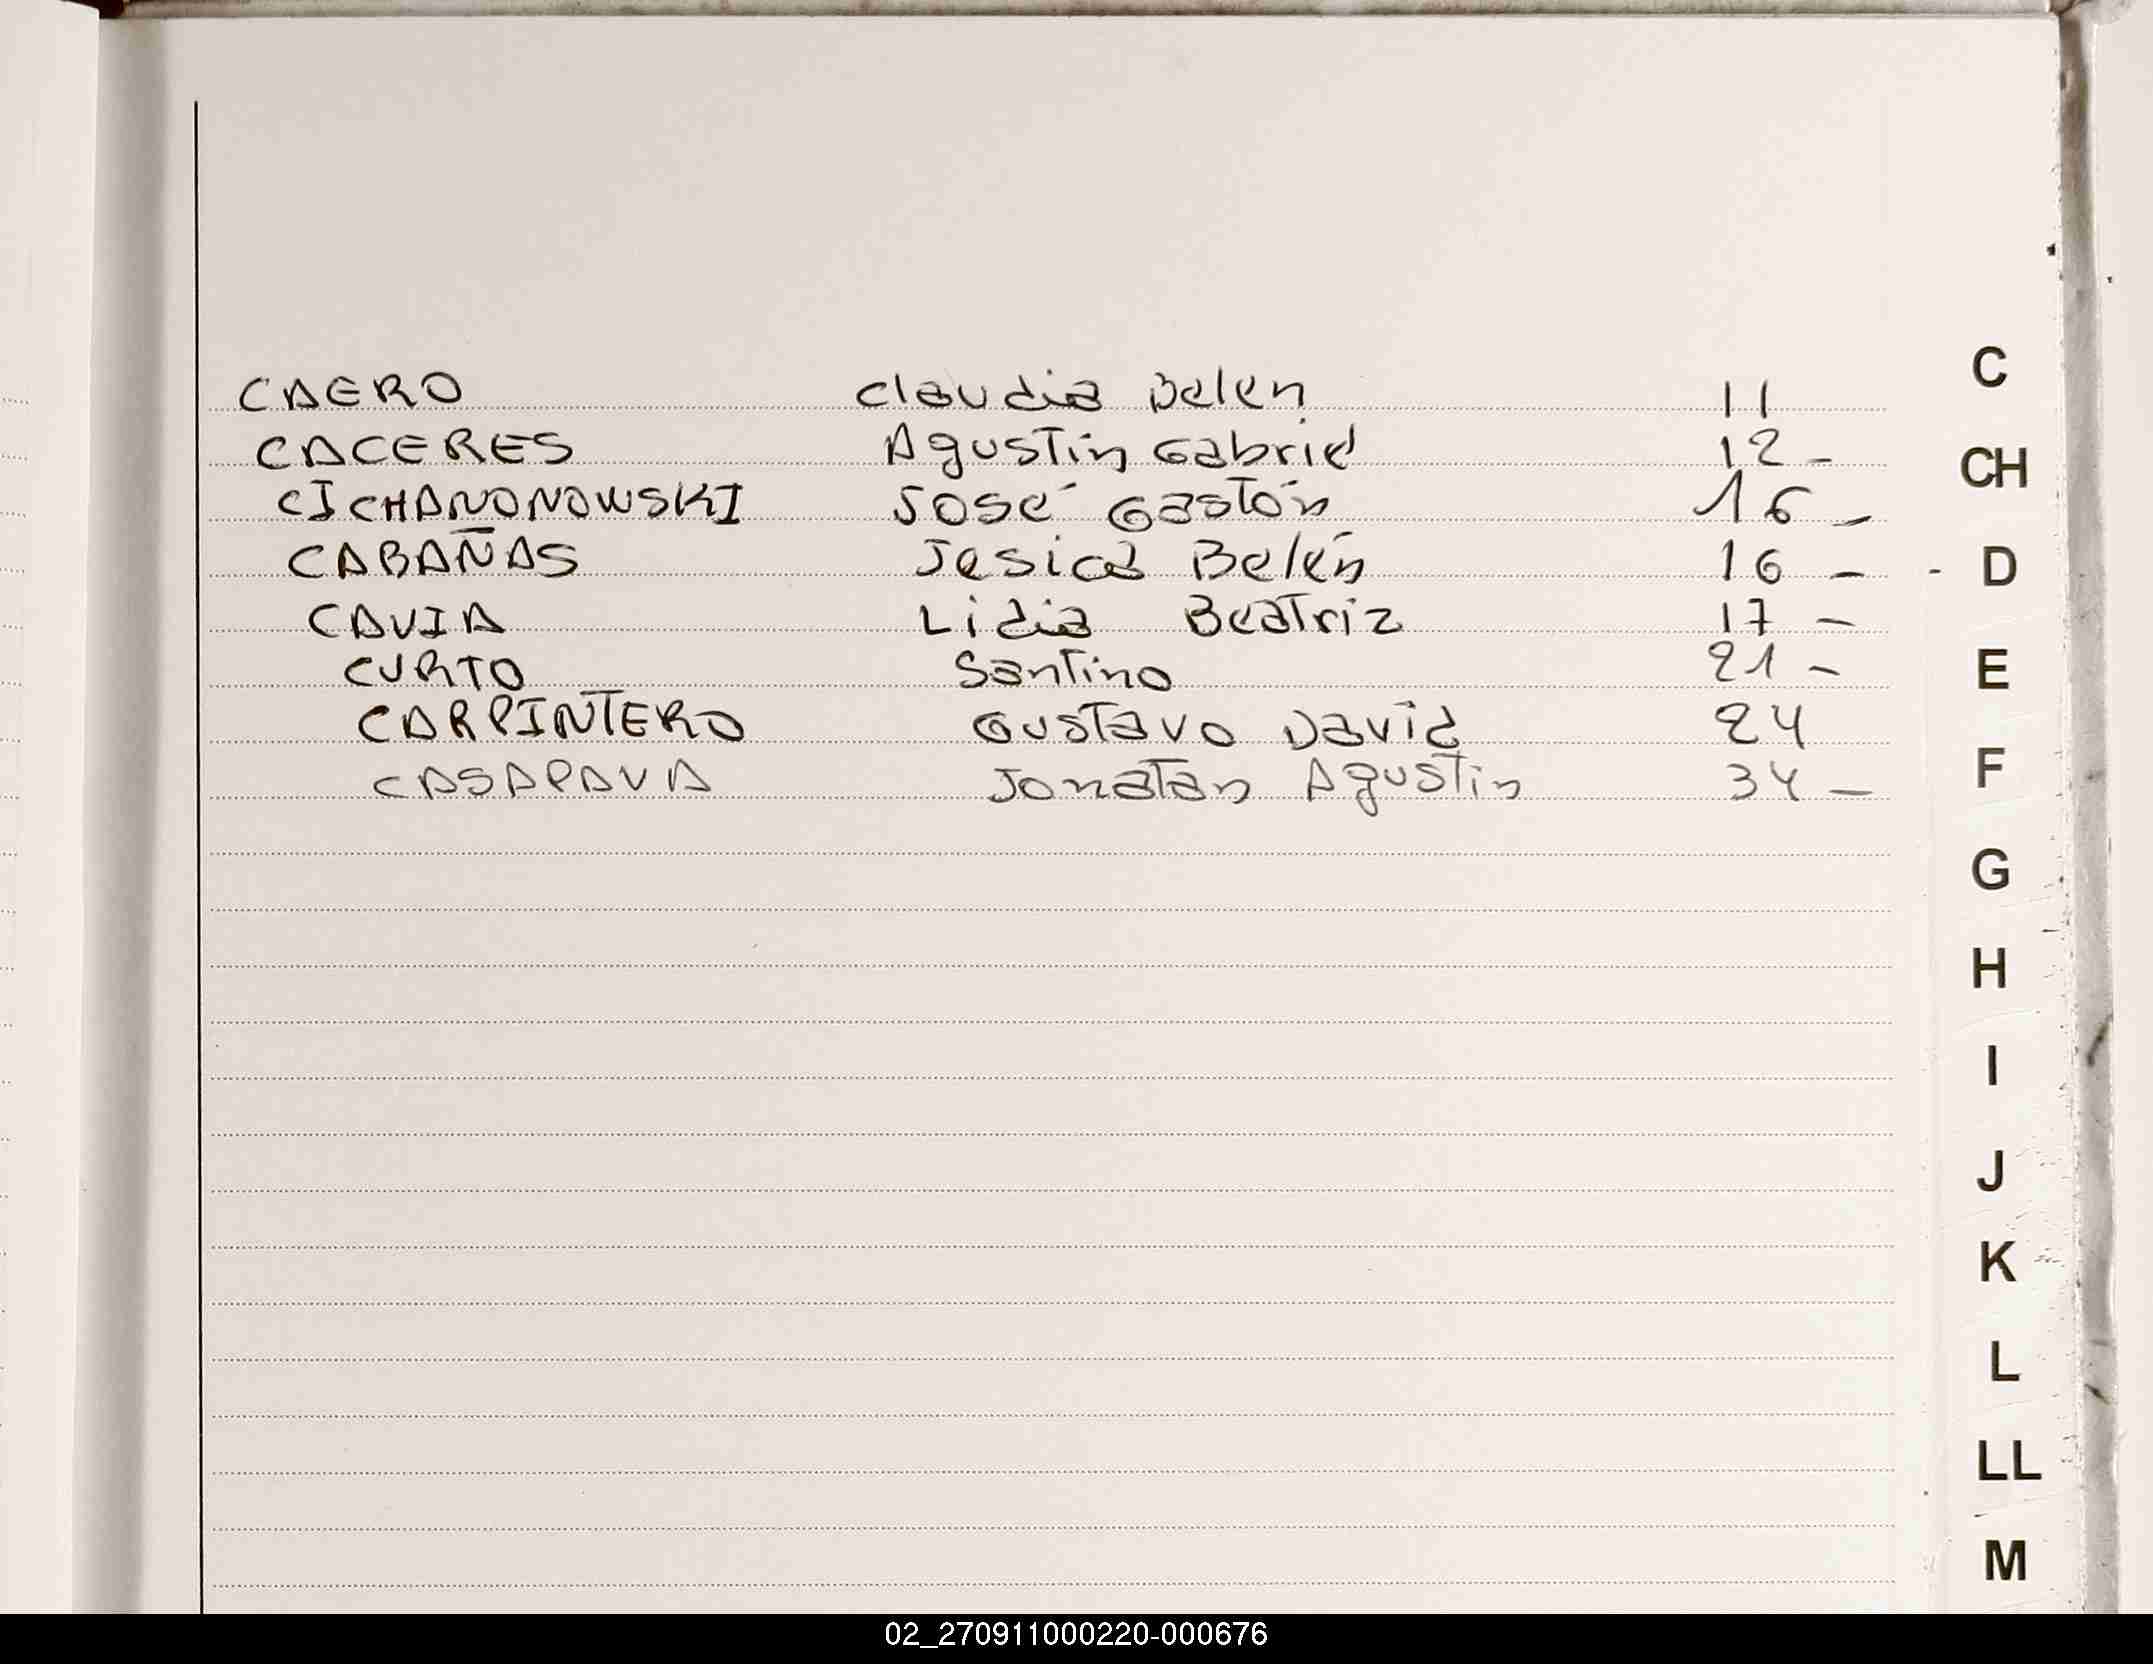 CAERO Claudia Belen 11
CACERES Agustin Gabriel 12 -
CICHANONOWSKI José Gastón 16 -
CABAÑAS Jesica Belén 16 -
CAVIA Lidia Beatriz 17 -
CURTO Santino 21 -
CARPINTERO Gustavo David 24
CASAPAVA Jonatan Agustin 34 -
C
CH
D
E
F
G
H
I
J
K
L
LL
M
02_270911000220-000676